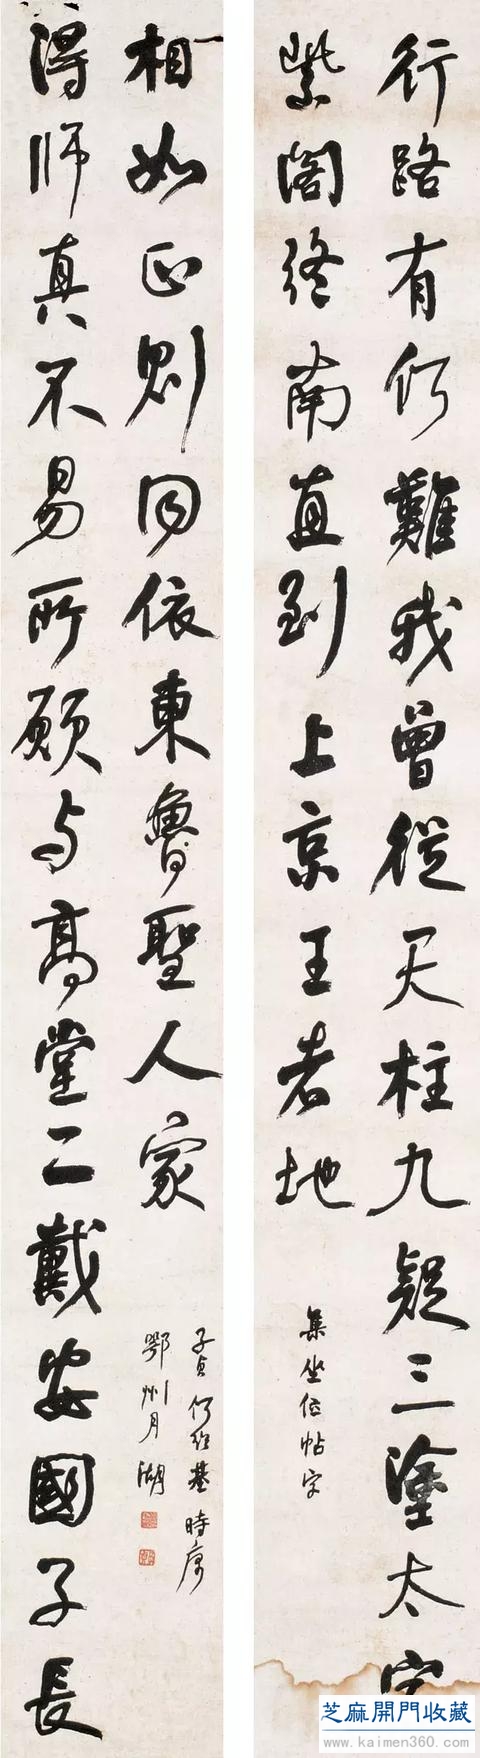 行路有何難我曾從天柱九疑三塗太
紫閣終南直到上京王者地
集坐位帖字
得師真不易所願与高堂二戴安國子長
相如正則同依東魯聖人家
子貞何紹基時寓
鄂州月湖
芝麻開門收藏
www.kaimen360.com